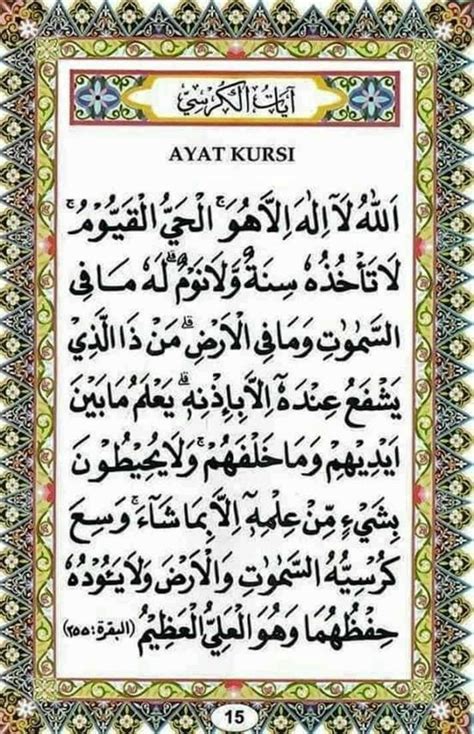 آيات الكرسي
AYAT KURSI
اَللّٰهُ لَآ اِلٰهَ اِلَّا هُوَۚ اَلْحَيُّ الْقَيُّوْمُ ۚ
لَا تَأْخُذُهٗ سِنَةٌ وَّلَا نَوْمٌ ۗ لَهٗ مَا فِى
السَّمٰوٰتِ وَمَا فِى الْاَرْضِ ۗ مَنْ ذَا الَّذِيْ
يَشْفَعُ عِنْدَهٗٓ اِلَّا بِاِذْنِهٖ ۗ يَعْلَمُ مَا بَيْنَ
اَيْدِيْهِمْ وَمَا خَلْفَهُمْ ۚ وَلَا يُحِيْطُوْنَ
بِشَيْءٍ مِّنْ عِلْمِهٖٓ اِلَّا بِمَا شَاۤءَ ۚ وَسِعَ
كُرْسِيُّهُ السَّمٰوٰتِ وَالْاَرْضَ وَلَا يَـُٔوْدُهٗ
حِفْظُهُمَا وَهُوَ الْعَلِيُّ الْعَظِيْمُ (البقرة : ٢٥٥)
15